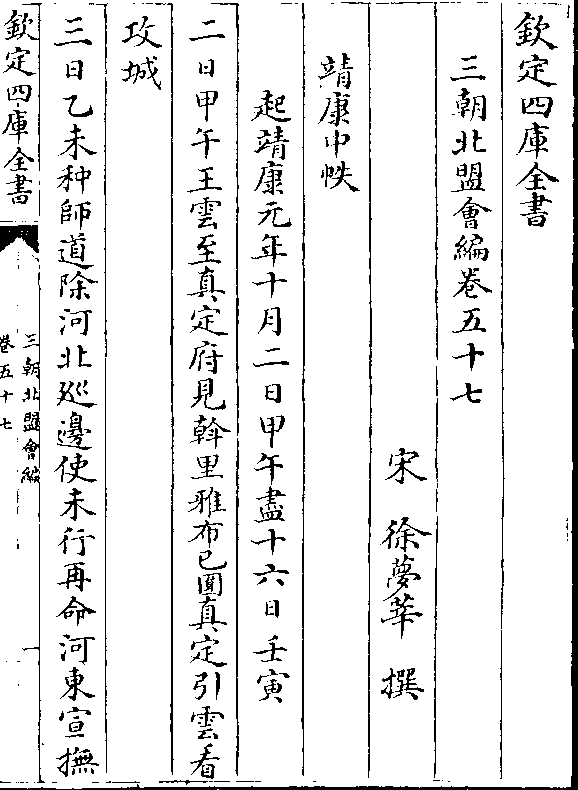 欽定四庫全書
三朝北盟會編卷五十七
宋 徐夢莘 撰
靖康中帙
起靖康元年十月二日甲午盡十六日壬寅
二日甲午王雲至真定府見斡里雅布已圍真定引雲看
攻城
三日乙未种師道除河北廵邊使未行再命河東宣撫
欽定四庫全書
三朝北盟會編
卷五十七
一